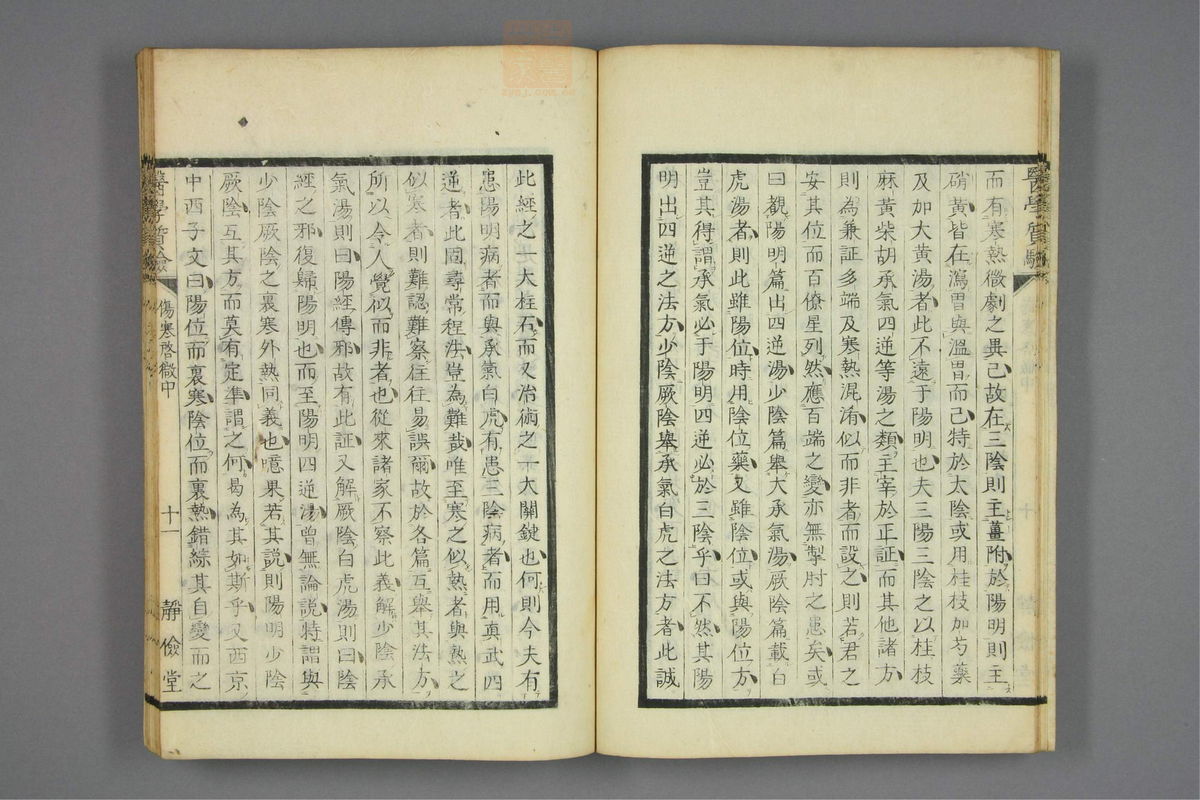 而有寒熱微劇之異己故在三陰則主薑附於陽明則主
硝黃皆在瀉胃與溫胃而己特於太陰或用桂枝加芍藥
及加大黃湯者此不遠于陽明也夫三陽三陰之以桂枝
麻黃柴胡承氣四逆等湯之類主宰於正証而其他諸方
則為兼証多端及寒熱混淆似而非者而設之則若君之
安其位而百僚星列然應百端之變亦無掣肘之患矣或
曰觀陽明篇出四逆湯少陰篇舉大承氣湯厥陰篇載白
虎湯者則此雖陽位時用陰位藥又雖陰位或與陽位方
豈其得謂承氣必于陽明四逆必於三陰乎曰不然其陽
明出四逆之法方少陰厥陰舉承氣白虎之法方者此誠
此經之一大柱石而又治術之一大關鍵也何則今夫有
患陽明病者而與承氣白虎有患三陰病者而用真武四
逆者此固尋常程法豈為難哉唯至寒之似熱者與熱之
似寒者則難認難察往往易誤爾故於各篇互舉其法方
所以令人覺似而非者也從來諸家不察此義解少陰承
氣湯則曰陽經傳邪故有此証又解厥陰白虎湯則曰陰
經之邪復歸陽明也而至陽明四逆湯曾無論說特謂與
少陰厥陰之裏寒外熱同義也噫果若其說則陽明少陰
厥陰互其方而莫有定準謂之何曷為其如斯乎又西京
中西子文曰陽位而裏寒陰位而裏熱錯綜其自變而之
醫學質驗
傷寒啓微中
十一
靜儉堂